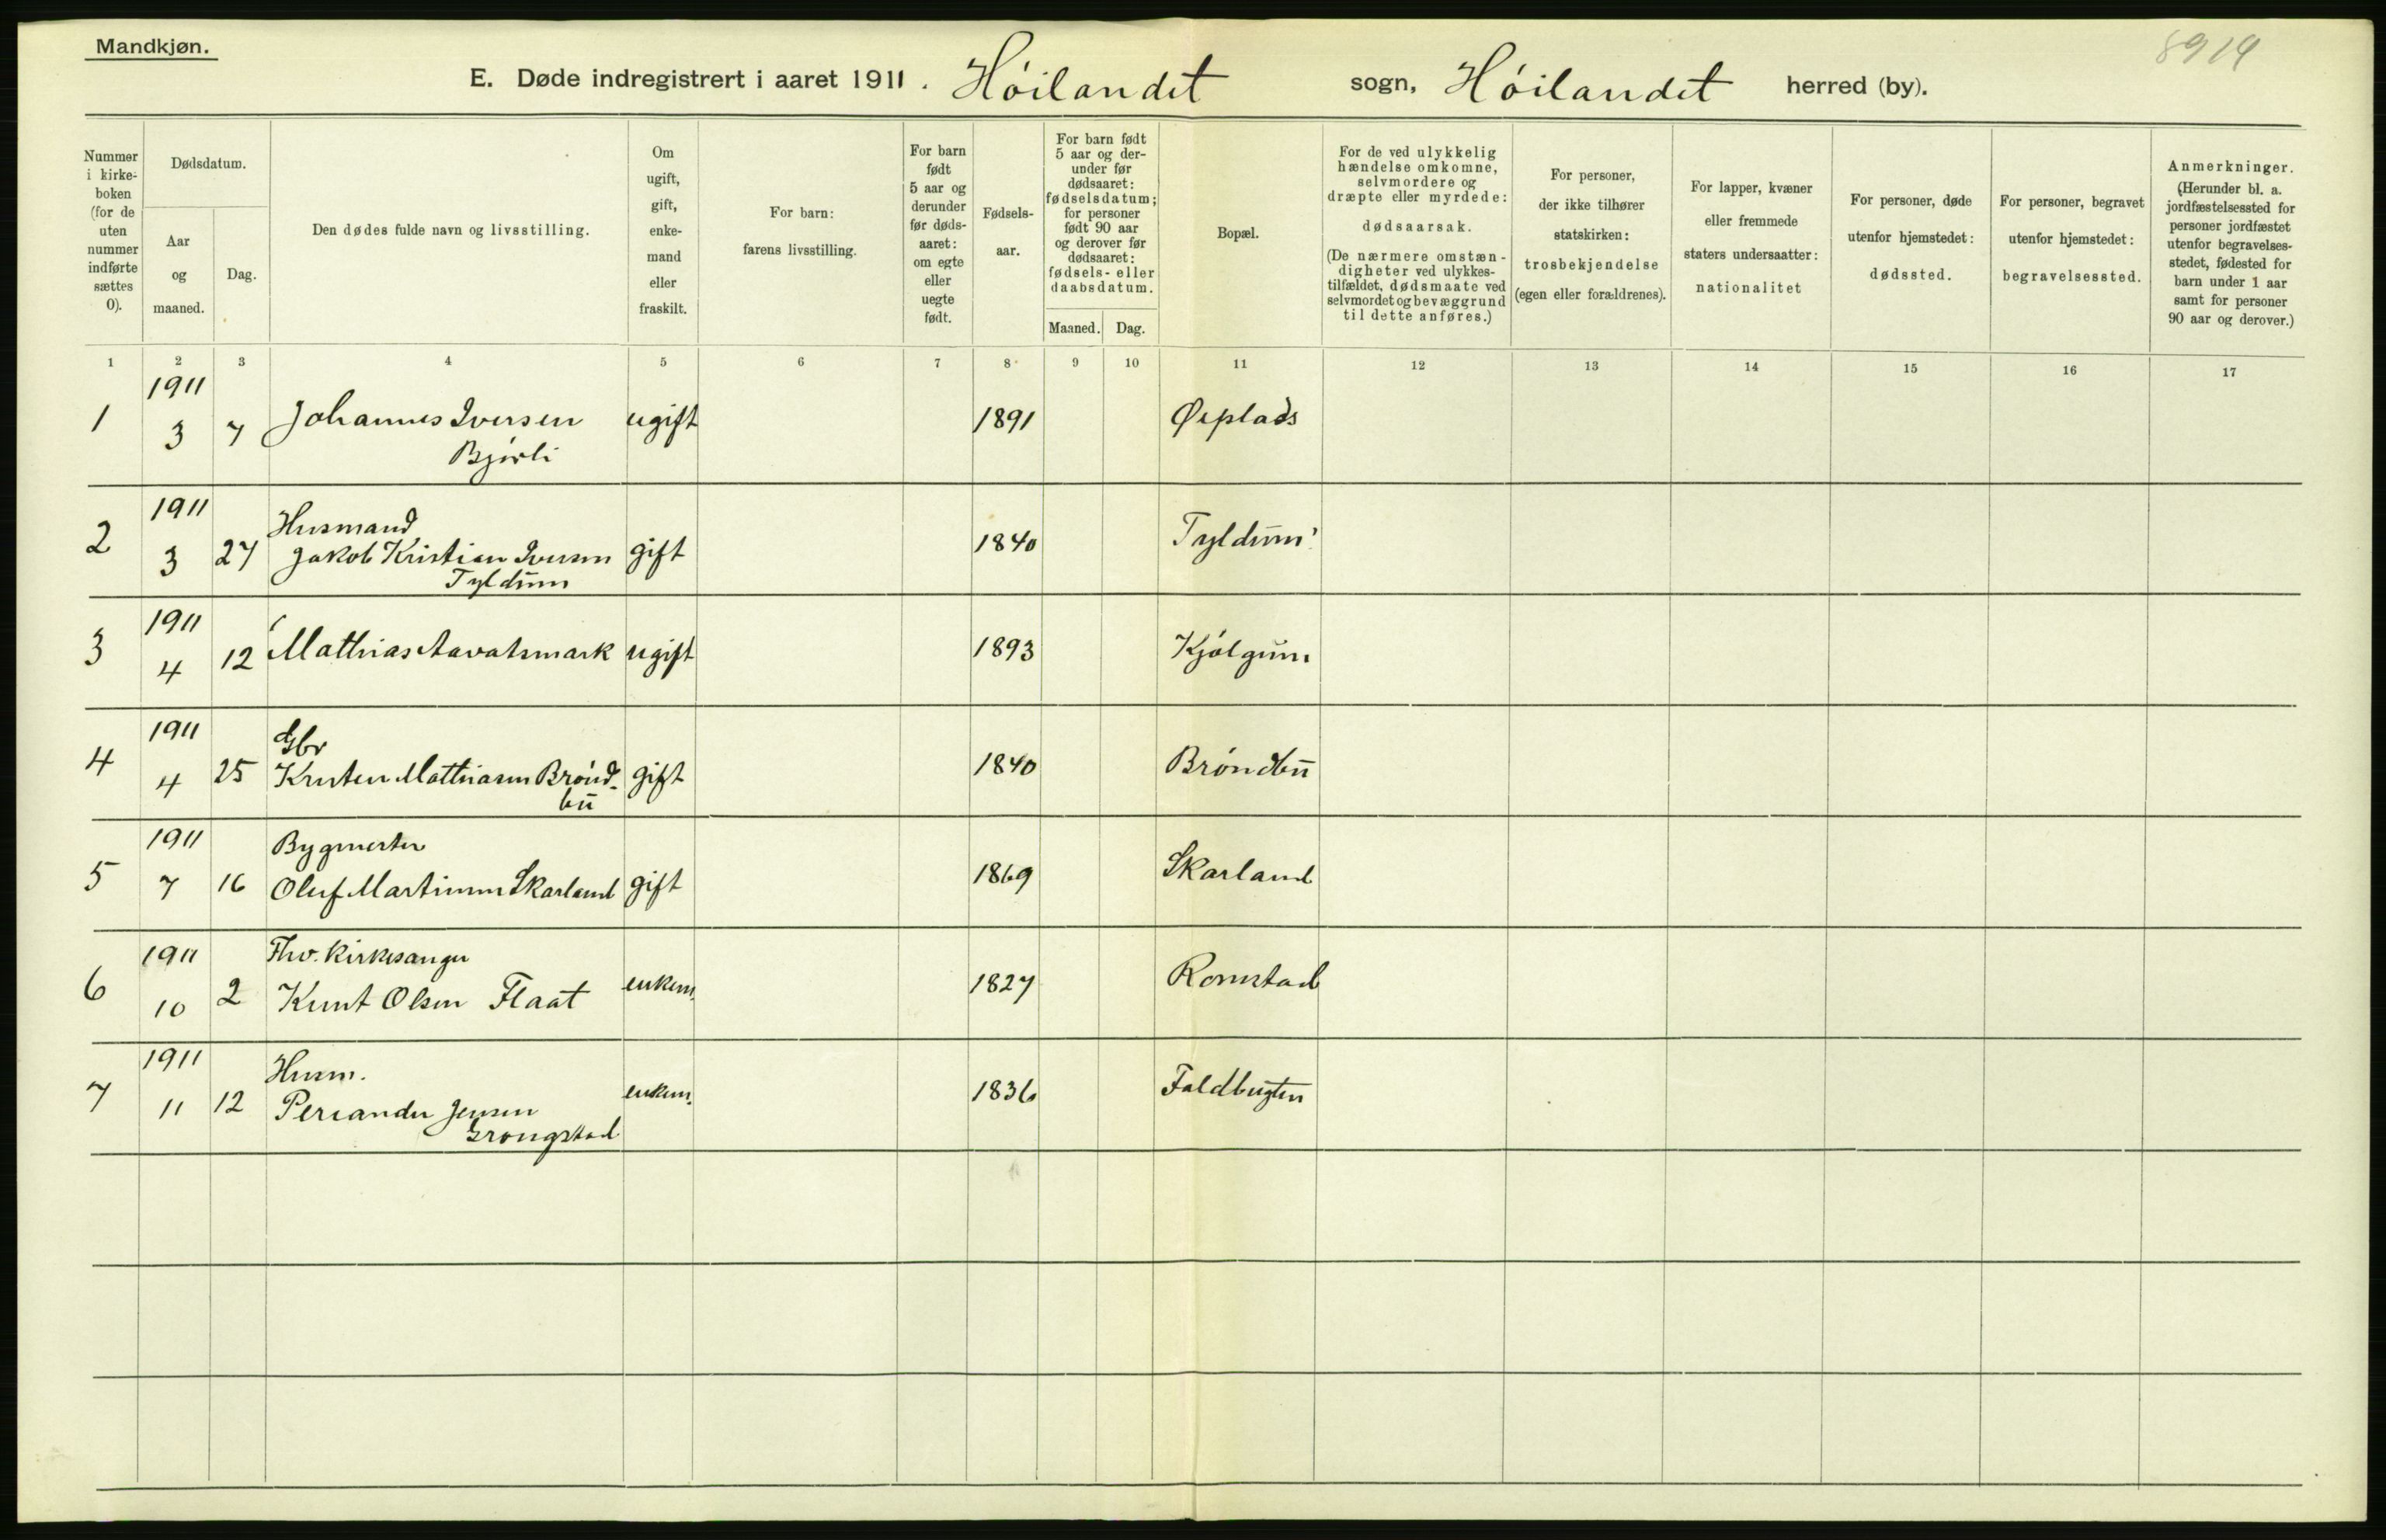 Mandkjøn.
8914
E. Døde indregistrert i aaret 1911. Höilandet sogn, Höilandet herred (by).
Nummer i kirke-boken (for de uten nummer indførte sættes 0).
Dødsdatum.
Aar og maaned.
Dag.
Den dødes fulde navn og livsstilling.
Om ugift, gift, enke-mand eller fraskilt.
For barn: farens livsstilling.
For barn født 5 aar og derunder før døds-aaret: om egte eller uegte født.
Fødsels-aar.
For barn født 5 aar og der-under før dødsaaret: fødselsdatum; for personer født 90 aar og derover før dødsaaret: fødsels- eller daabsdatum.
Maaned. Dag.
Bopæl.
For de ved ulykkelig hændelse omkomne, selvmordere og dræpte eller myrdede: dødsaarsak. (De nærmere omstæn-digheter ved ulykkes-tilfældet, dødsmaate ved selvmordet og bevæggrund til dette anføres.)
For personer, der ikke tilhører statskirken: trosbekjendelse (egen eller forældrenes).
For lapper, kvæner eller fremmede staters undersaatter: nationalitet
For personer, døde utenfor hjemstedet: dødssted.
For personer, begravet utenfor hjemstedet: begravelsessted.
Anmerkninger. (Herunder bl. a. jordfæstelsessted for personer jordfæstet utenfor begravelses-stedet, fødested for barn under 1 aar samt for personer 90 aar og derover.)
1 2 3 4 5 6 7 8 9 10 11 12 13 14 15 16 17
1911
1 3 7 Johannes Iversen ugift 1891 Øiplads
Björli
1911
Husmand
2 3 27 Jakob Kristian Iversen gift 1840 Tyldum
Tyldum
1911
3 4 12 Mathias Aavatsmark ugift 1893 Kjölgum
1911
Gbr
4 4 25 Krsten Mathiasen Brönd- gift 1840 Bröndbu
bu
1911
Bygmester
5 7 16 Oluf Martinusen Skarland gift 1869 Skarland
1911
Fhv. Kirkesanger
6 10 2 Knut Olsen Flaat enkem. 1827 Romstad
1911
Husm.
7 11 12 Periander Jensen enkem. 1836 Foldbugten
Grongstad